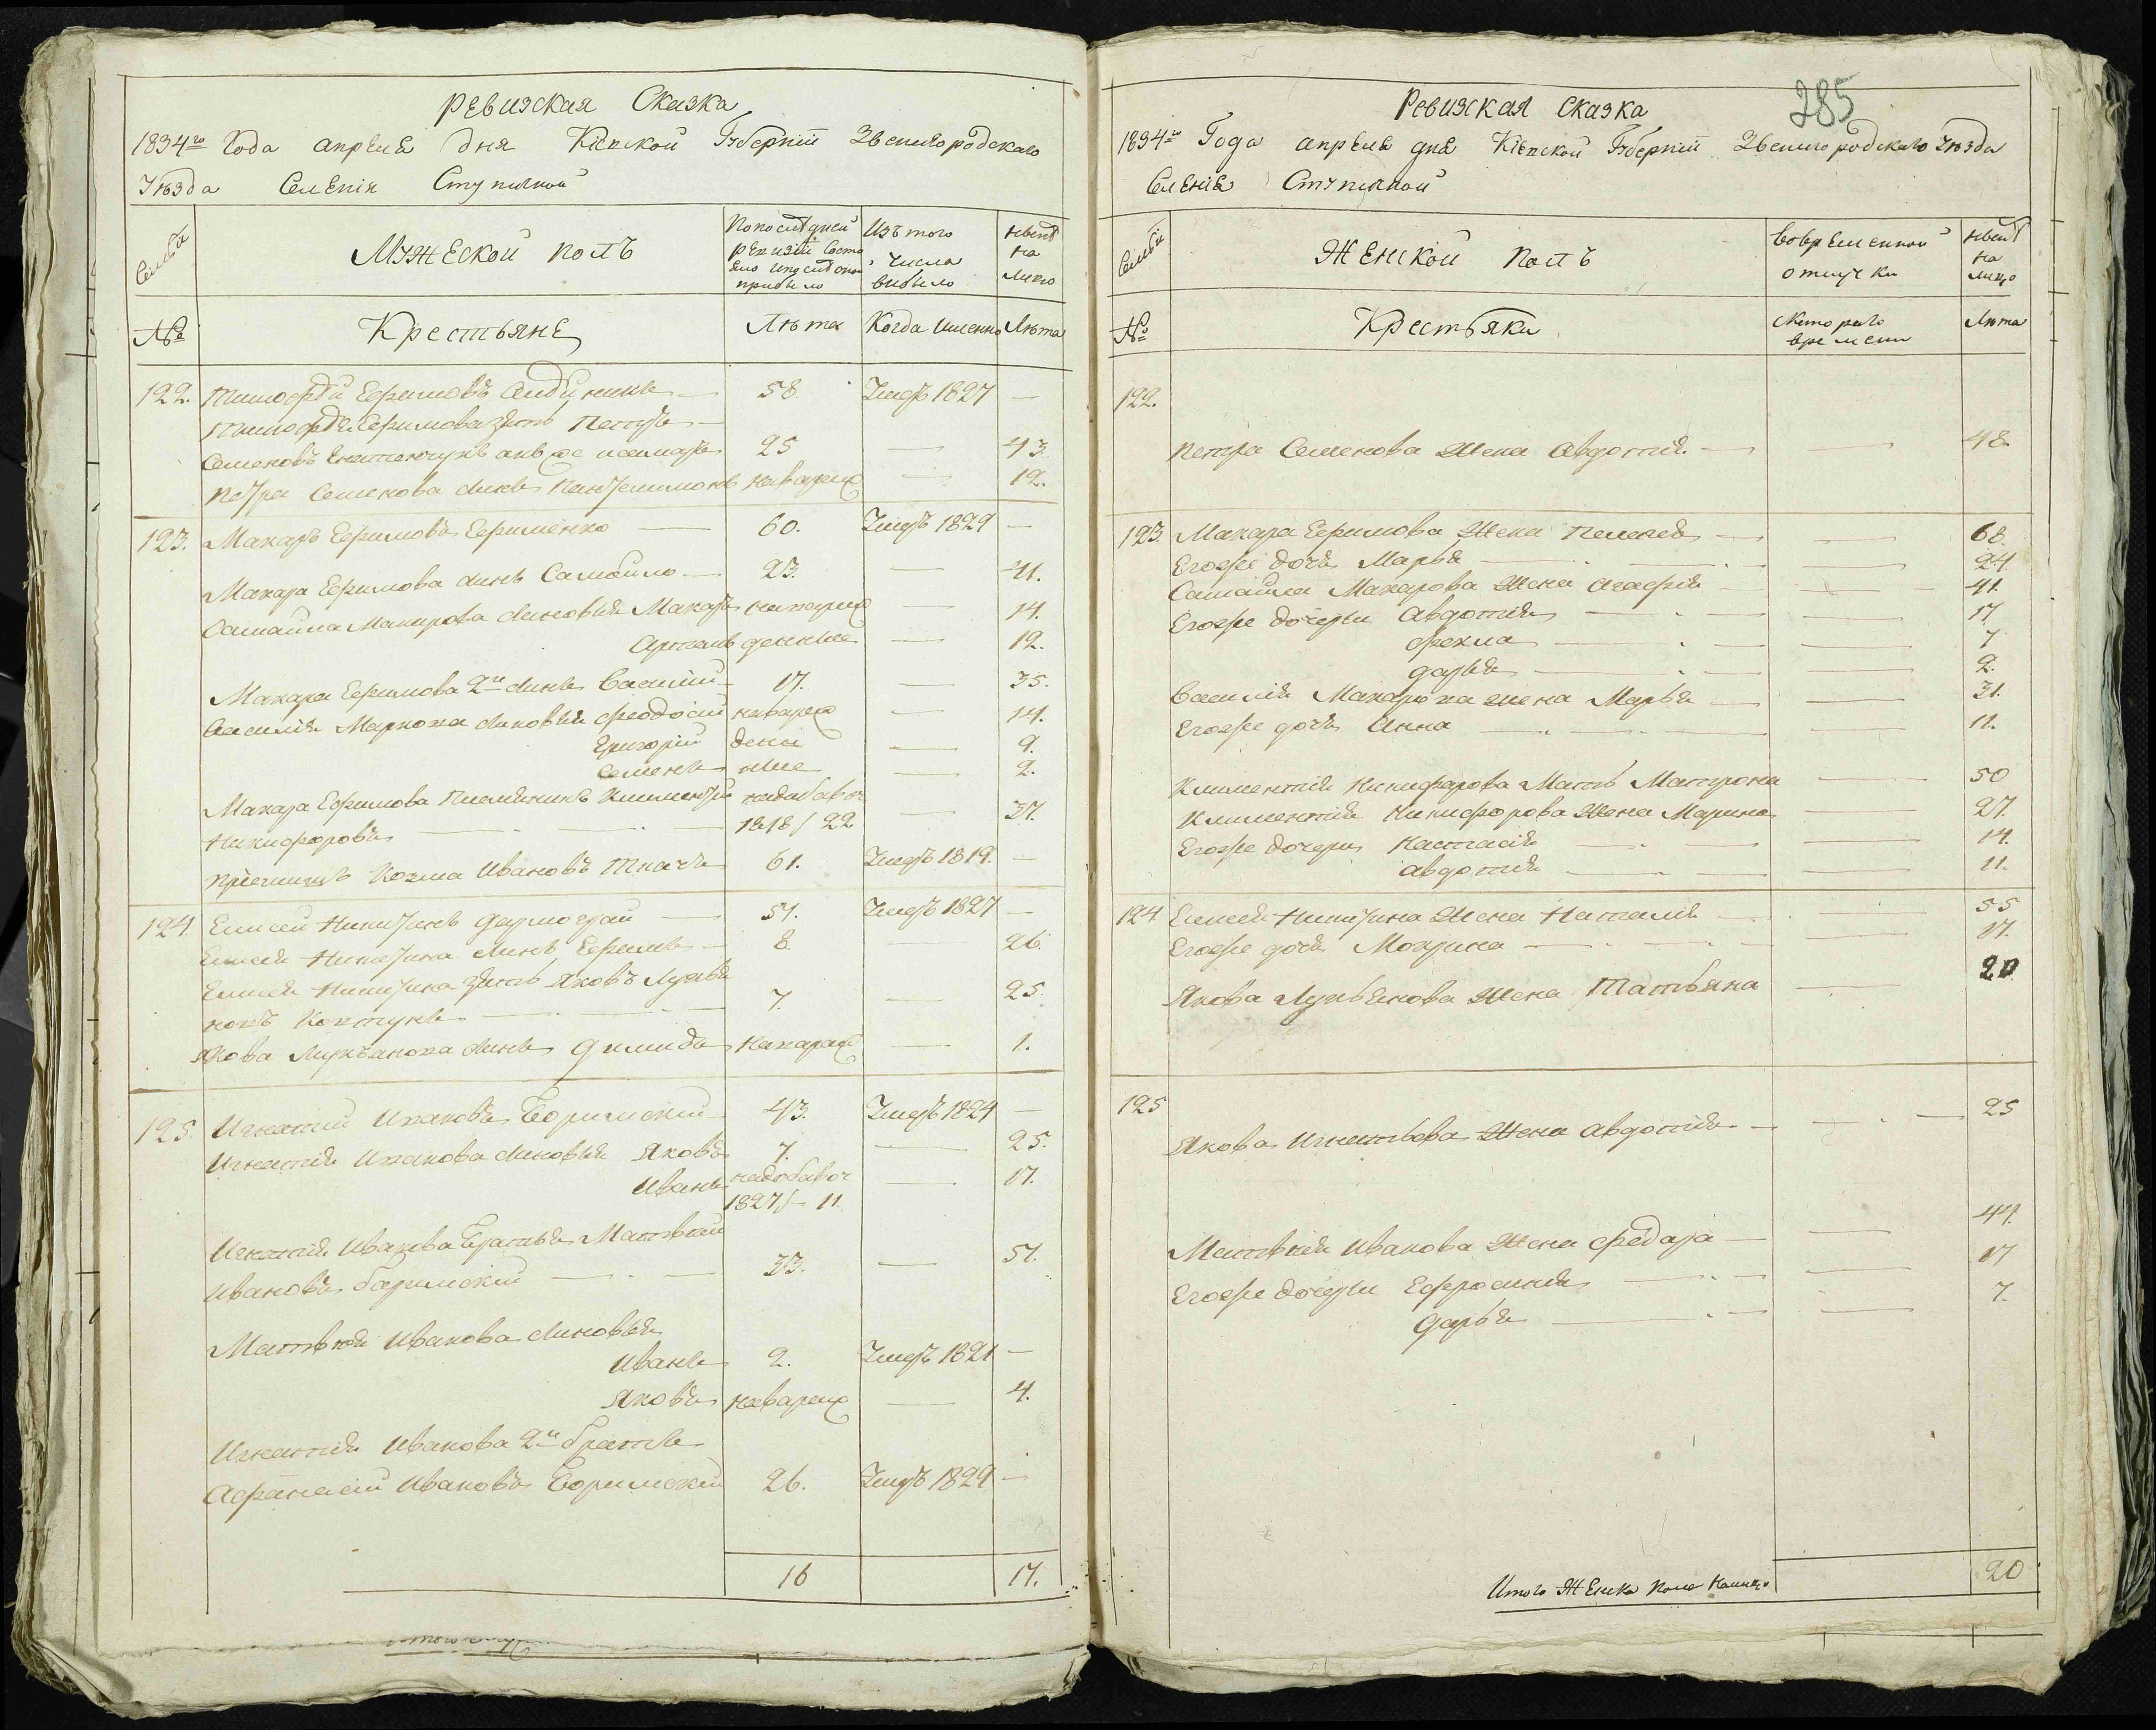 Ревизская Сказка
1834го Года апреля дня Кіевской Губерніи Звенигородскаго
Уѣзда Селенія Ступичной
Семьи
Мужеской полъ
По последней ревизіи состояло и после оной прибыло
Изъ того числа выбыло
Ныне на лицо
№
Крестьяне
Лѣта
Когда именно
Лѣта
122. Тимофей Ефимовъ 58. Умеръ 1827 —
Тимофея Ефимова зять Петръ
Семеновъ 25 — 43.
Петра Семенова сынъ Пантелимонъ наварож 12.
123. Макаръ Ефимовъ Ефименко — 60. Умеръ 1829 —
Макара Ефимова сынъ Самойло — 23. — 41.
Самойла Макарова сыновья Макаръ наварож — 14.
Артемъ денные — 12.
Макара Ефимова 2й сынъ Василій — 17. — 35.
Василія Маркова сыновья Феодосій наварож — 14.
Григорій дена — 9.
Семенъ ные — 2.
Макара Ефимова племянникъ Климентій надобавоч
Никифоровъ — 1818 / 22 — 37.
Пріемышъ Козма Ивановъ Ткачъ 61. Умеръ 1819. —
124. Елисей Никитинъ — 51. Умеръ 1827 —
Елисея Никитина сынъ Ефимъ — 8. — 26.
Елисея Никитина зять Яковъ Лукья
новъ Ковтунъ — 7. — 25.
Якова Лукъянова сынъ Димидъ наварож — 1.
125. Игнатій Ивановъ Боримскій 43. Умеръ 1824 —
Игнатія Иванова сыновья Яковъ 7. — 25.
Иванъ надобавоч — 17.
1827/— 11.
Игнатія Иванова Братья Матвѣй
Ивановъ Боримскій — 33. — 51.
Матвѣя Иванова сыновья
Иванъ 2. Умеръ 1821 —
Яковъ наварож — 4.
Игнатія Иванова 2й братъ
Афанасій Ивановъ Боримскій 26. Умеръ 1829 —
16 17.
285
Ревизская Сказка
1834го Года апреля дня Кіевской Губерніи Звенигородскаго Уѣзда
Селенія Ступичной
Семьи
Женской полъ
Во временной отлучки
Ныне на лицо
№
Крестьянки
С котораго времени
Лѣта
122.
Петра Семенова Жена Авдотия — 48.
123. Макара Ефимова Жена Пелагея — 68.
Егоже дочь Марья — 24
Самайла Макарова Жена Агафия — 41.
Егоже дочери Авдотия — 17
Фекла — 7
Дарья — 2.
Василія Макарова жена Марья — 31.
Егоже дочь Анна — 11.
Климентия Никифорова Мать Матрона — 50
Климентия Никифорова Жена Марина — 27.
Егоже дочери Настасия — 14.
Авдотия — 11.
124 Елисея Никитина Жена Наталия — 55
Егоже дочь Мокрина — 17.
Якова Лукьянова Жена Татьяна — 20
125
Якова Игнатьева Жена Авдотия — 25
Матвѣя Иванова Жена Федора — 44.
Егоже дочери Ефросиния — 17
Дарья — 7.
Итого Женска пола налицо 20